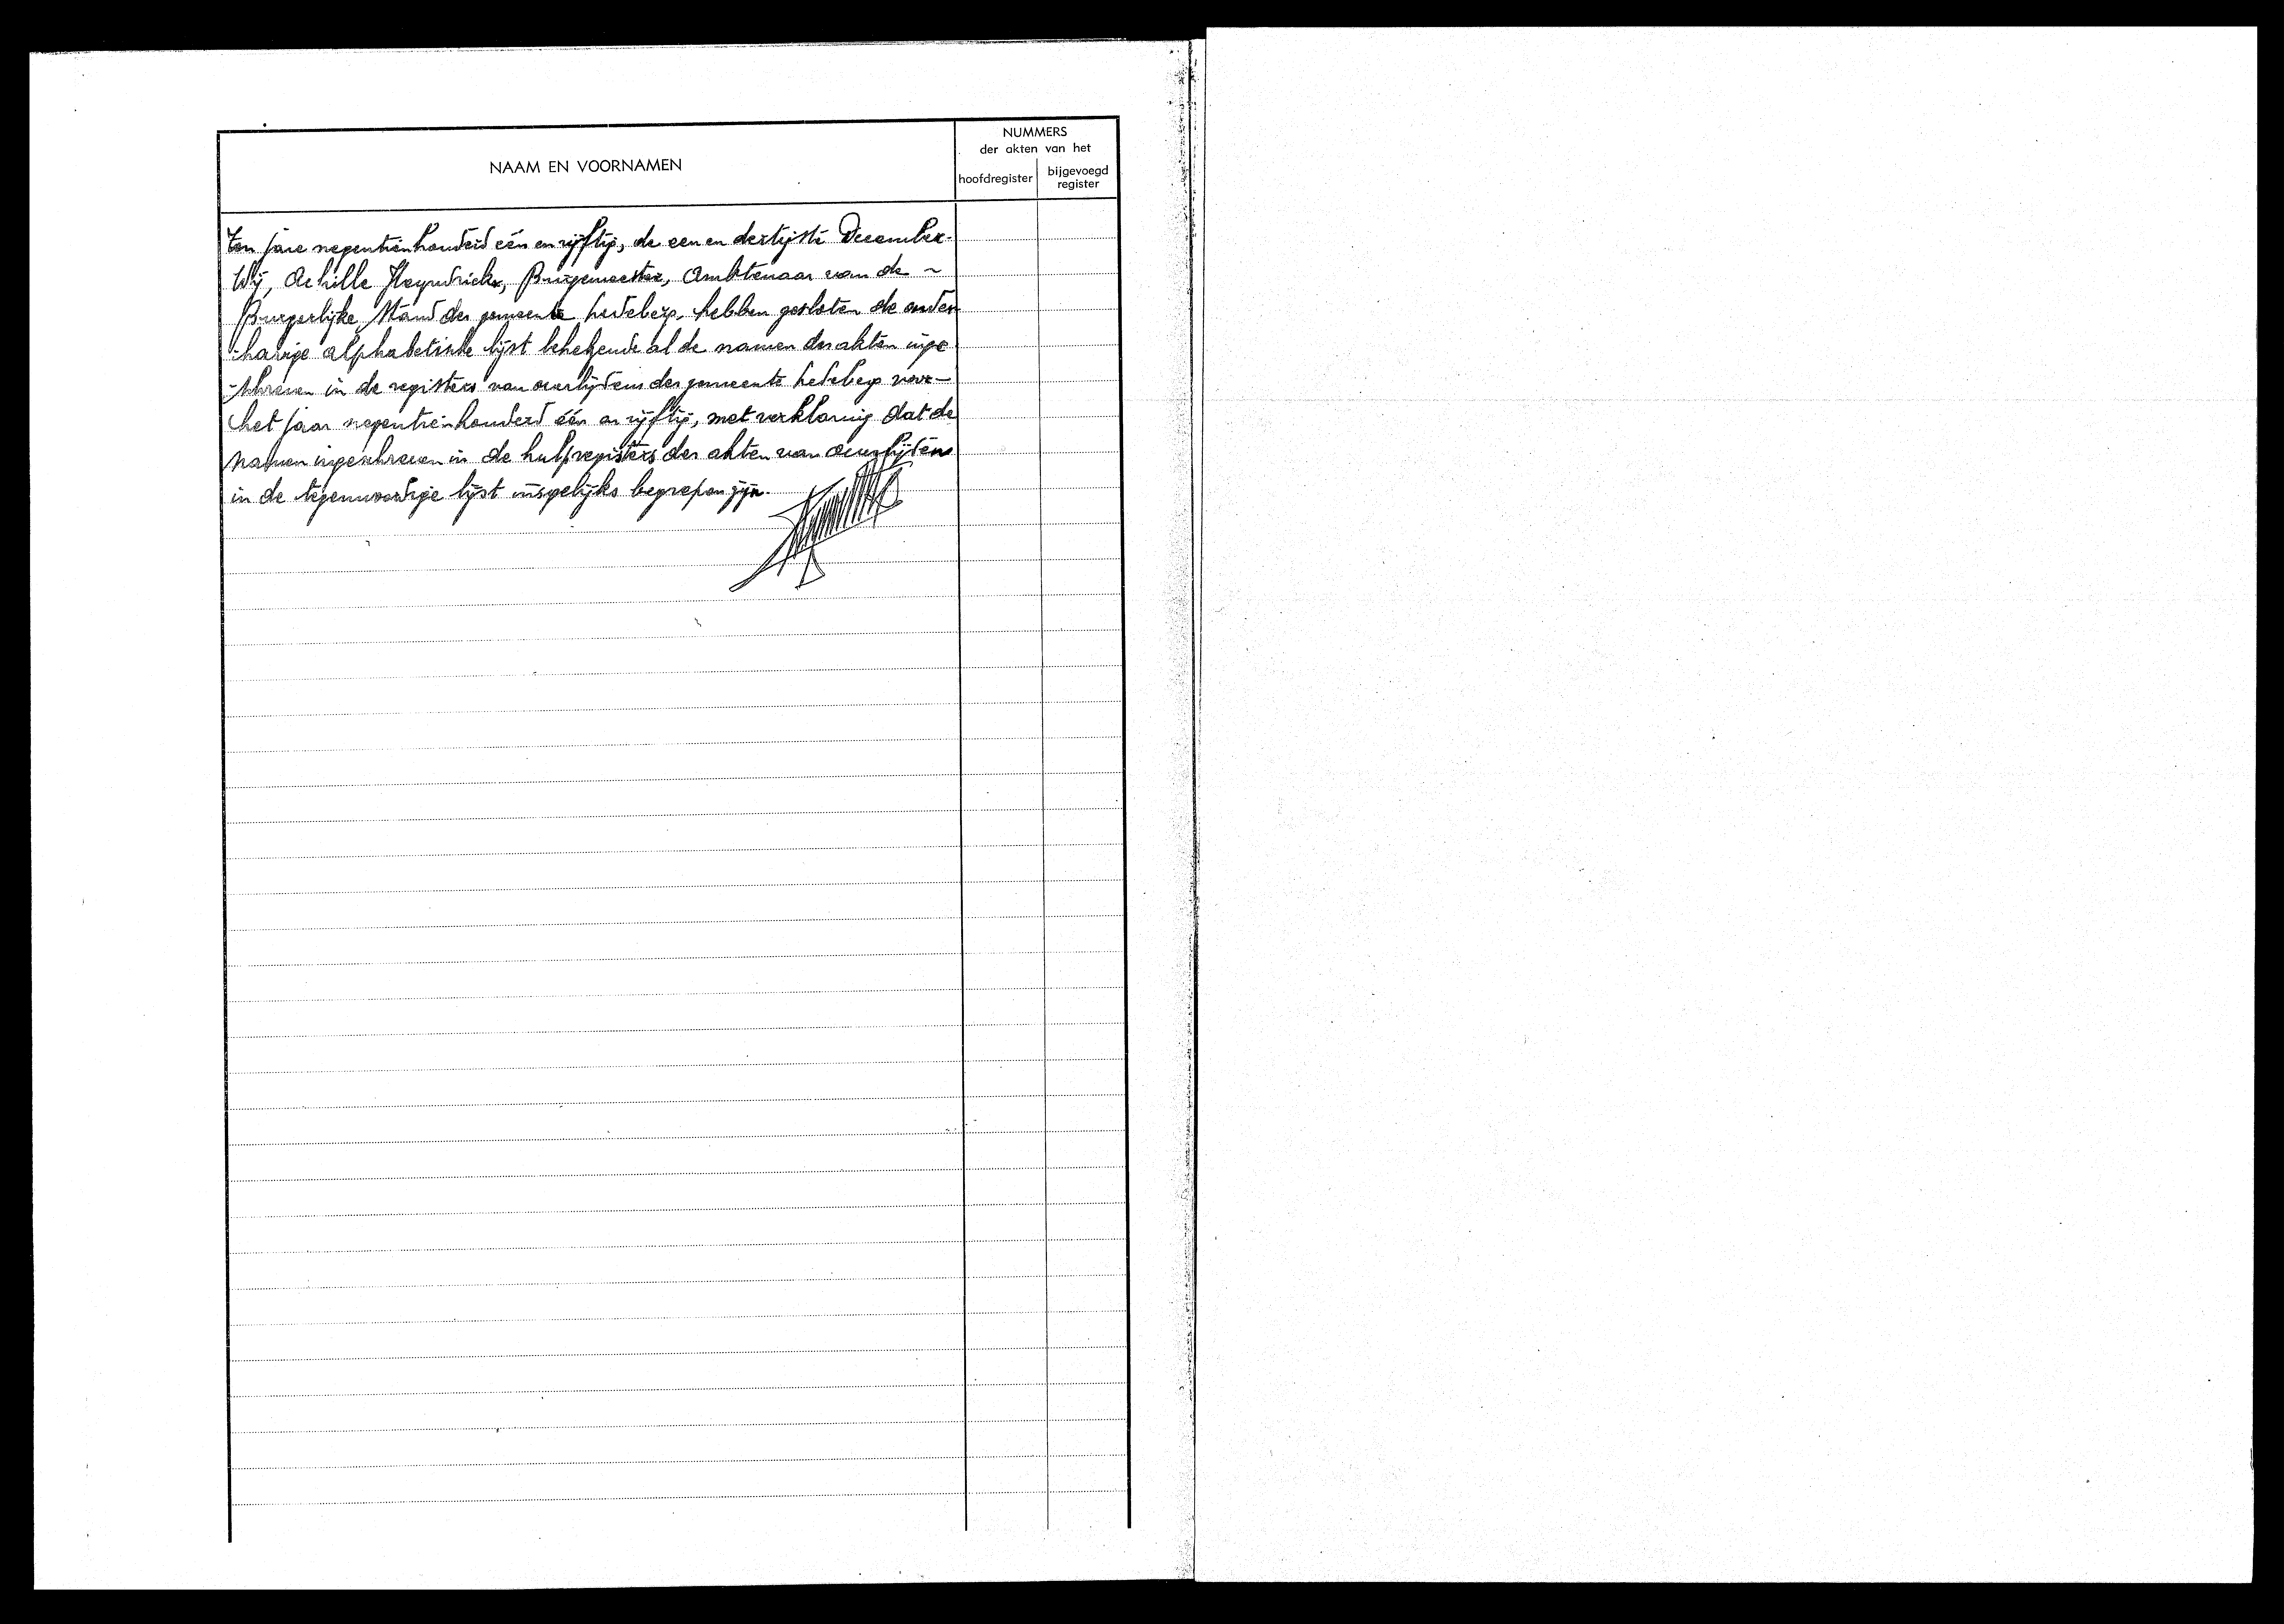 NAAM EN VOORNAMEN
NUMMERS
der akten van het
hoofdregister
bijgevoegd
register
Ten jare negentienhonderd één en vijftig, de een en dertigste December.
Wij, Achille Heyndrickx, Burgemeester, Ambtenaar van de ~
Burgerlijke Stand der gemeente Ledeberg, hebben gesloten de onder
-havige alphabetische lijst behelzende al de namen der akten inge
-schreven in de registers van overlijdens der gemeente Ledeberg voor -
het jaar negentienhonderd één en vijftig, met verklaring dat de
namen ingeschreven in de hulpregisters der akten van overlijdens
in de tegenwoordige lijst insgelijks begrepen zijn.